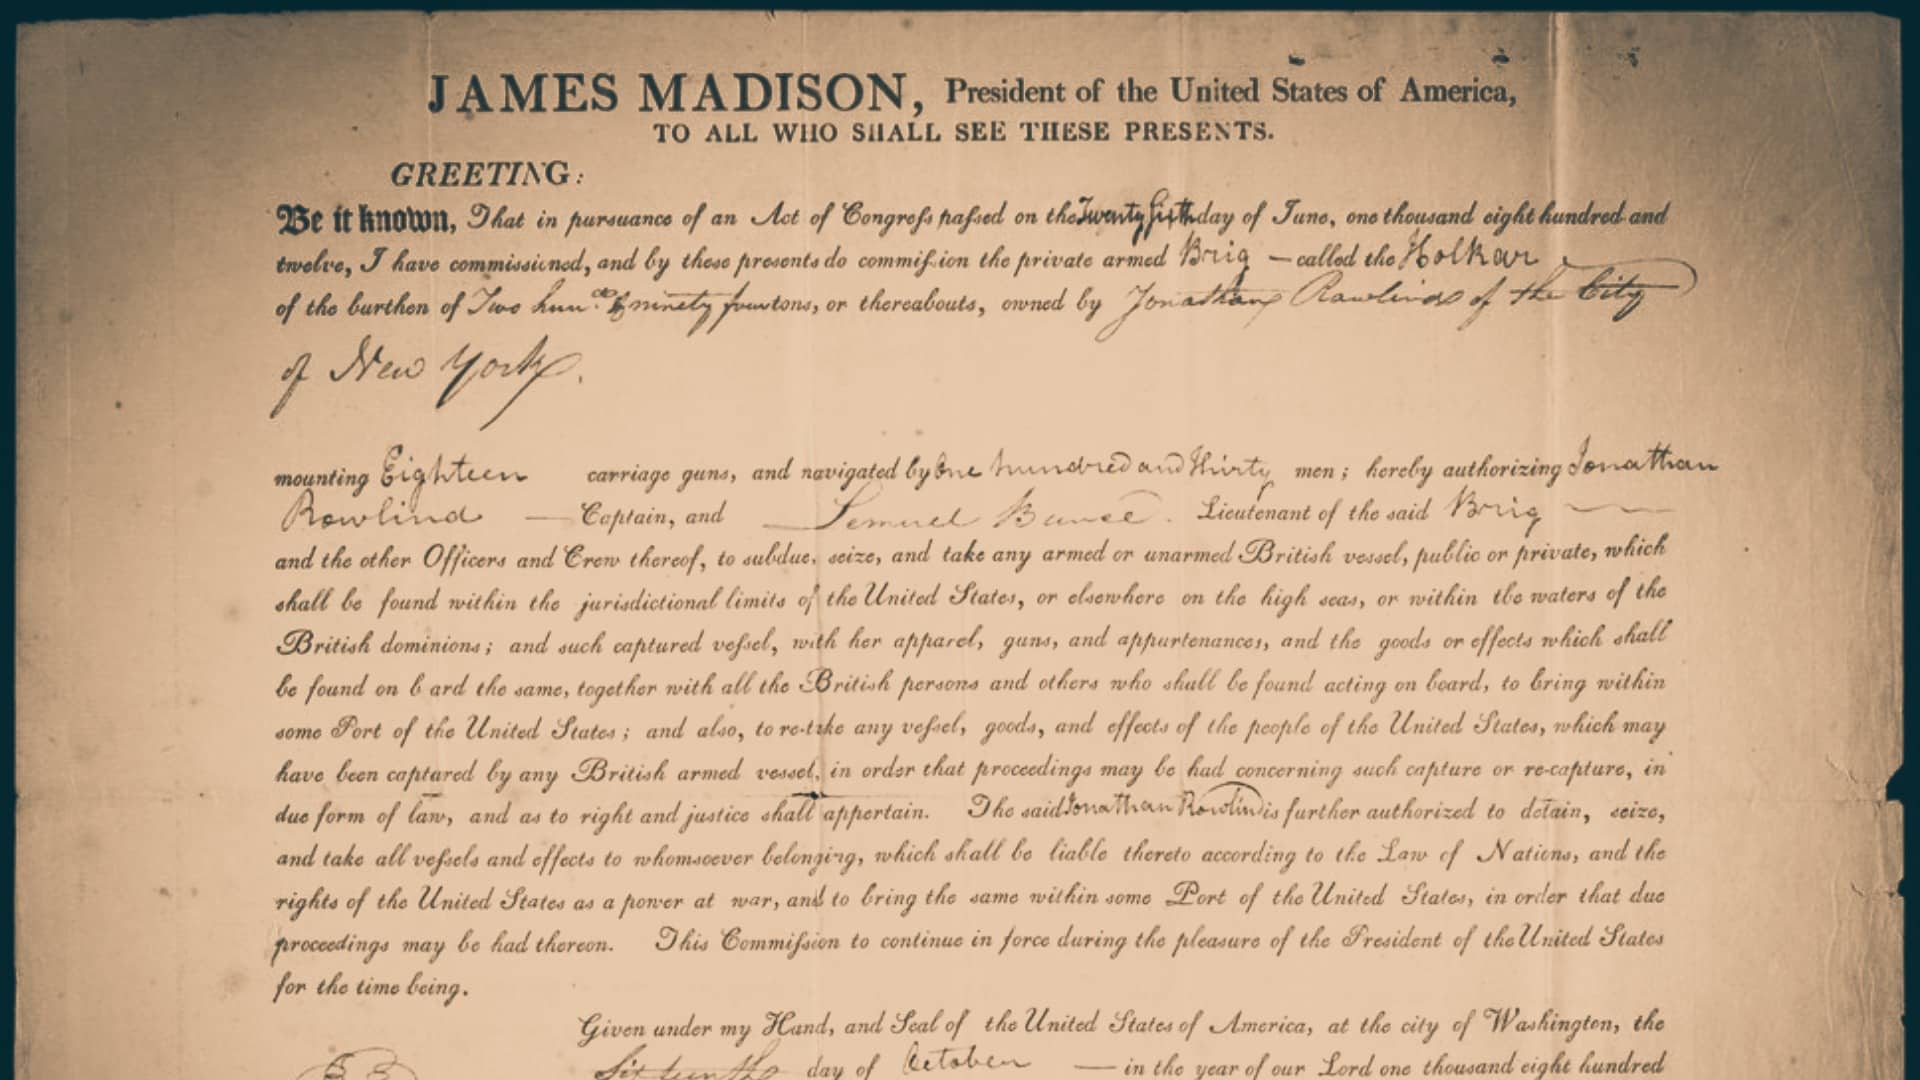 JAMES MADISON, President of the United States of America,
TO ALL WHO SHALL SEE THESE PRESENTS.
GREETING:
Be it known, That in pursuance of an Act of Congreſs paſsed on the Twenty Sixth day of June, one thousand eight hundred and
twelve, I have commissioned, and by these presents do commiſsion the private armed Brig — called the Holkar
of the burthen of Two hund. & ninety four tons, or thereabouts, owned by Jonathan Rowland of the City
of New York.
mounting Eighteen carriage guns, and navigated by One hundred and thirty men; hereby authorizing Jonathan
Rowland — Captain, and Samuel Bunce. Lieutenant of the said Brig —
and the other Officers and Crew thereof, to subdue, seize, and take any armed or unarmed British vessel, public or private, which
shall be found within the jurisdictional limits of the United States, or elsewhere on the high seas, or within the waters of the
British dominions; and such captured veſsel, with her apparel, guns, and appurtenances, and the goods or effects which shall
be found on b ard the same, together with all the British persons and others who shall be found acting on board, to bring within
some Port of the United States; and also, to re-take any veſsel, goods, and effects of the people of the United States, which may
have been captured by any British armed vessel, in order that proceedings may be had concerning such capture or re-capture, in
due form of law, and as to right and justice shall appertain. The said Jonathan Rowland is further authorized to detain, seize,
and take all veſsels and effects to whomsoever belonging, which shall be liable thereto according to the Law of Nations, and the
rights of the United States as a power at war, and to bring the same within some Port of the United States, in order that due
proceedings may be had thereon. This Commiſsion to continue in force during the pleasure of the President of the United States
for the time being.
Given under my Hand, and Seal of the United States of America, at the city of Washington, the
Sixteenth day of October — in the year of our Lord one thousand eight hundred